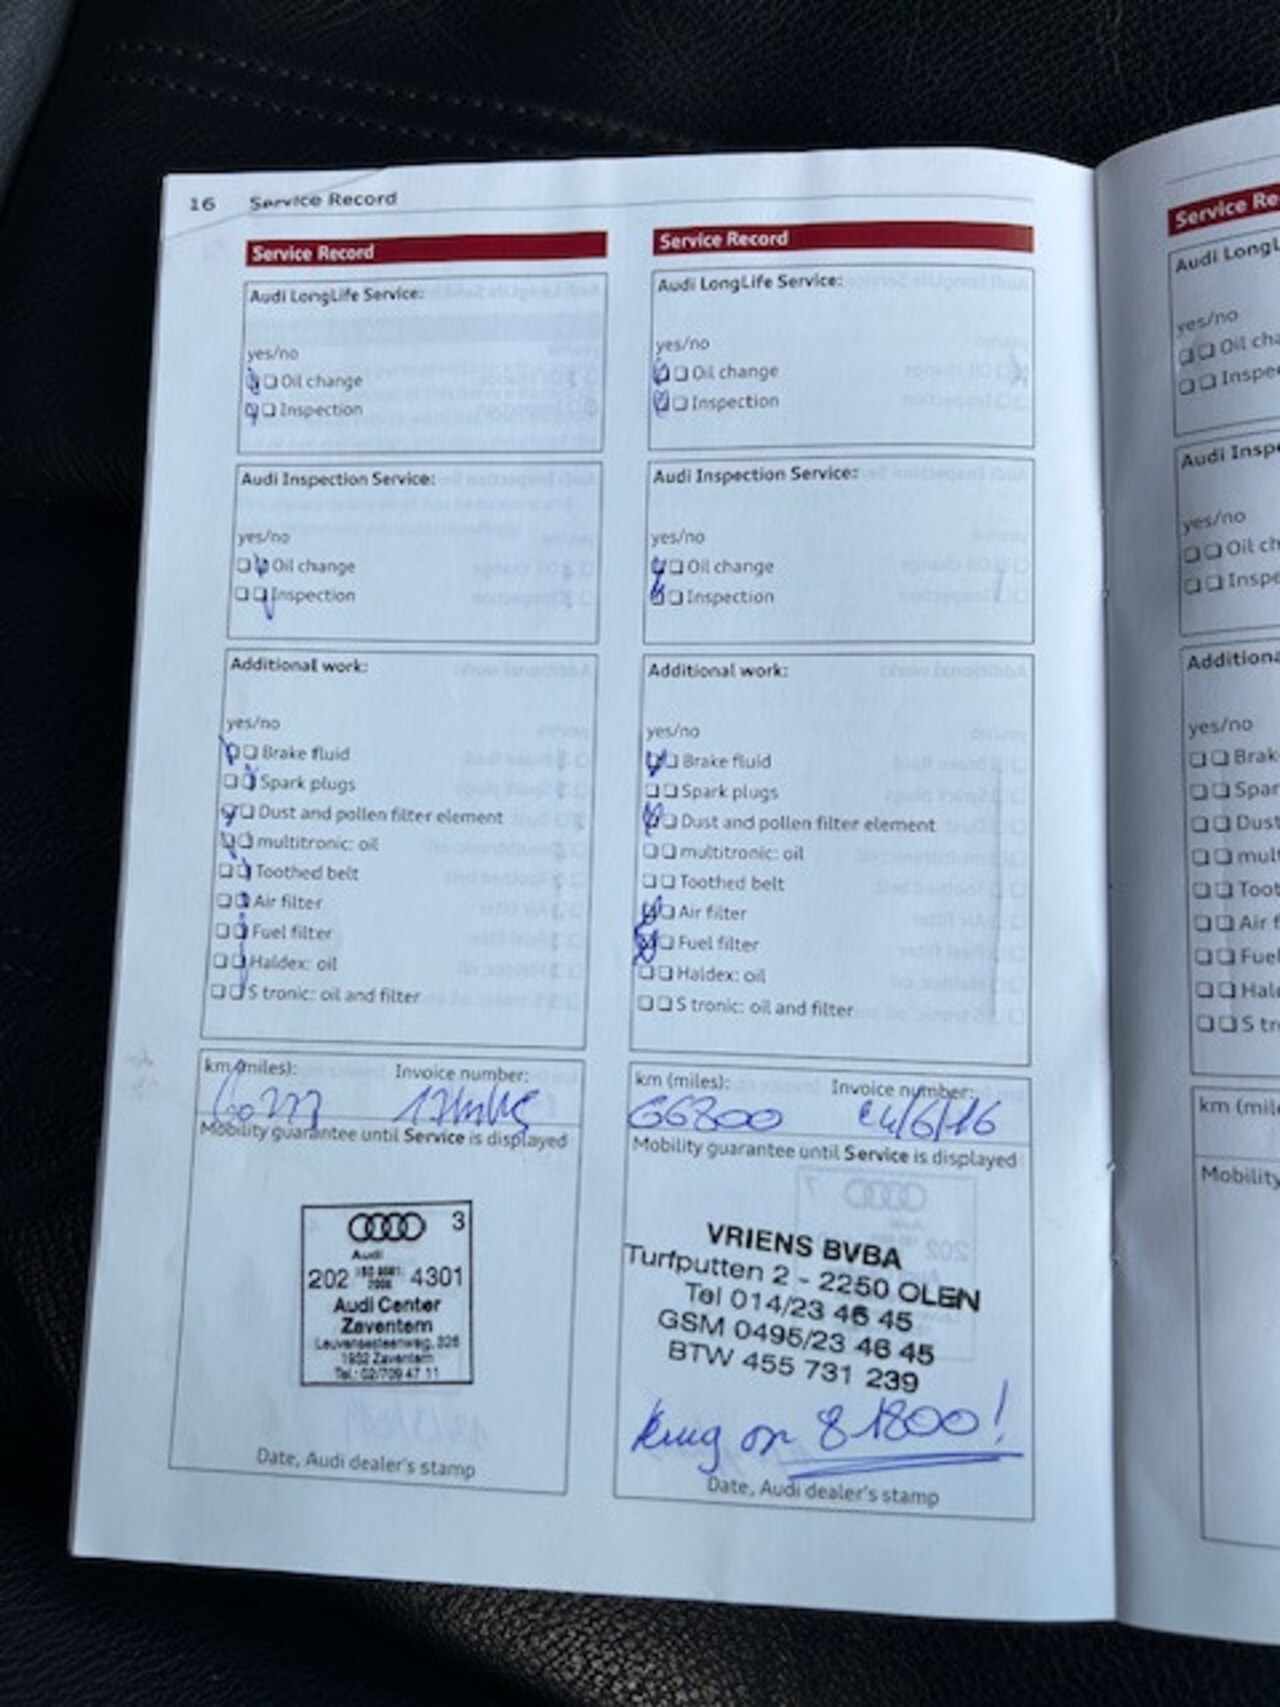 16 Service Record
Service Record
Audi LongLife Service:
yes/no
Oil change
Inspection
Audi Inspection Service:
yes/no
Oil change
Inspection
Additional work:
yes/no
Brake fluid
Spark plugs
Dust and pollen filter element
multitronic: oil
Toothed belt
Air filter
Fuel filter
Haldex: oil
S tronic: oil and filter
km (miles): Invoice number:
Mobility guarantee until Service is displayed
3
Audi
202 ISO 9001: 2008 4301
Audi Center
Zaventem
Leuvensesteenweg, 326
1932 Zaventem
Tel.: 02/709 47 11
Date, Audi dealer's stamp
Service Record
Audi LongLife Service:
yes/no
Oil change
Inspection
Audi Inspection Service:
yes/no
Oil change
Inspection
Additional work:
yes/no
Brake fluid
Spark plugs
Dust and pollen filter element
multitronic: oil
Toothed belt
Air filter
Fuel filter
Haldex: oil
S tronic: oil and filter
km (miles): Invoice number:
66800 /6/16
Mobility guarantee until Service is displayed
VRIENS BVBA
Turfputten 2 - 2250 OLEN
Tel 014/23 46 45
GSM 0495/23 46 45
BTW 455 731 239
81800!
Date, Audi dealer's stamp
Service Re
Audi LongL
yes/no
Oil cha
Inspe
Audi Inspe
yes/no
Oil ch
Inspe
Additiona
yes/no
Brak
Spar
Dust
mult
Toot
Air f
Fue
Hal
S tr
km (mil
Mobility